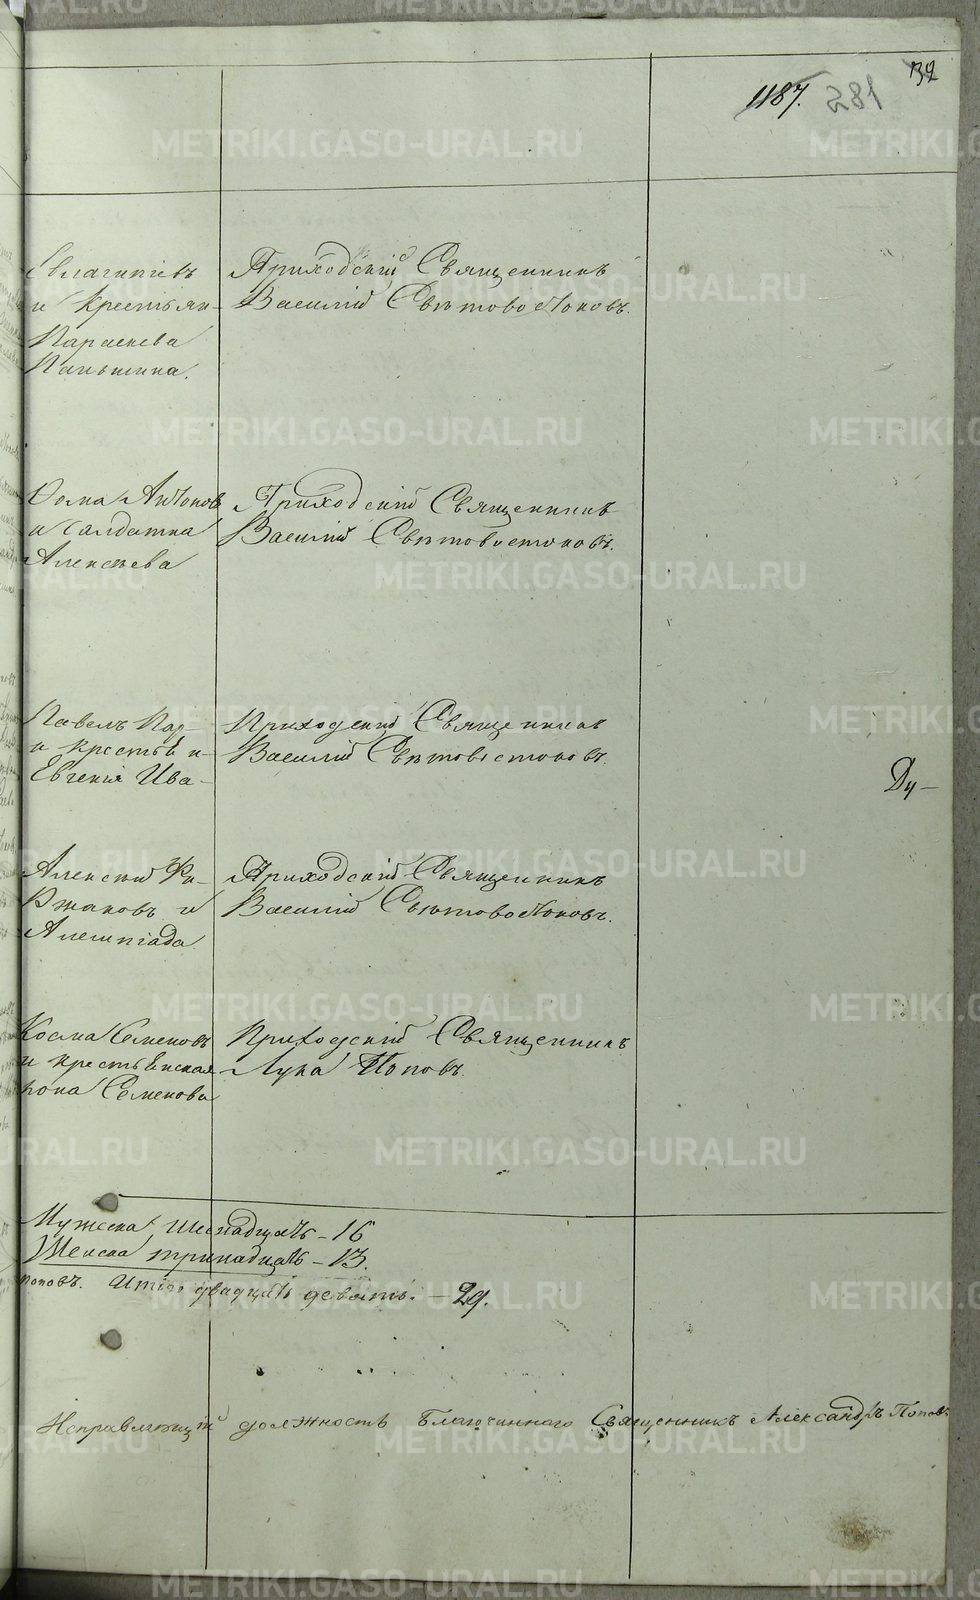 132
1187. 281
Евлагитіевъ
и крестьян-
Параскева
Паньшина.
Приходскій Священникъ
Василій Свѣтовостоковъ.
Ѳома Антоновъ
и Салдатка
Алексѣева
Приходскій Священникъ
Василій Свѣтовостоковъ.
Павелъ Пар-
и крестьян-
Евгенія Ива-
Приходскій Священникъ
Василій Свѣтовостоковъ.
Ду-
Алексѣй
Ржаковъ и
Алимпіада
Приходскій Священникъ
Василій Свѣтовостоковъ.
Косма Семеновъ
и крестьянская
жона Семенова
Приходскій Священникъ
Лука Поповъ.
Мужеска шеснадцать - 16
Женска тринадцать - 13.
Поповъ. Итого двадцать девять. - 29.
Исправляющій должность Благочиннаго Священникъ Александръ Поповъ
METRIKI.GASO-URAL.RU